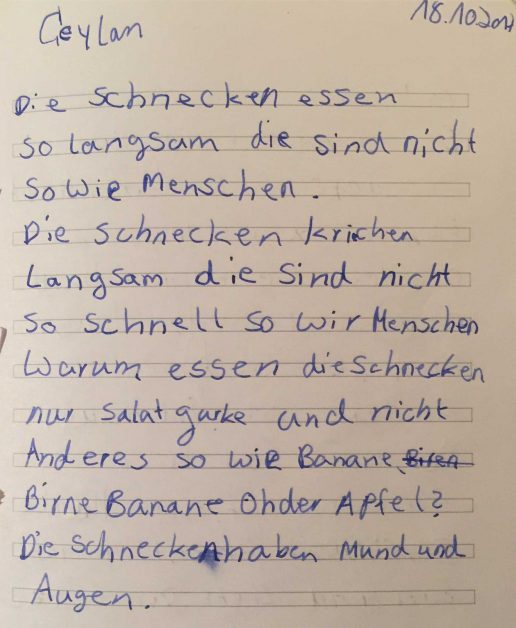 Ceylan
18.10.20
Die Schnecken essen
so langsam die sind nicht
so wie Menschen.
Die Schnecken krichen
Langsam die Sind nicht
So schnell so wir Menschen
Warum essen die Schnecken
nur Salat gurke und nicht
Anderes so wie Banane,
Birne Banane Ohder Apfel?
Die Schnecken haben Mund und
Augen.